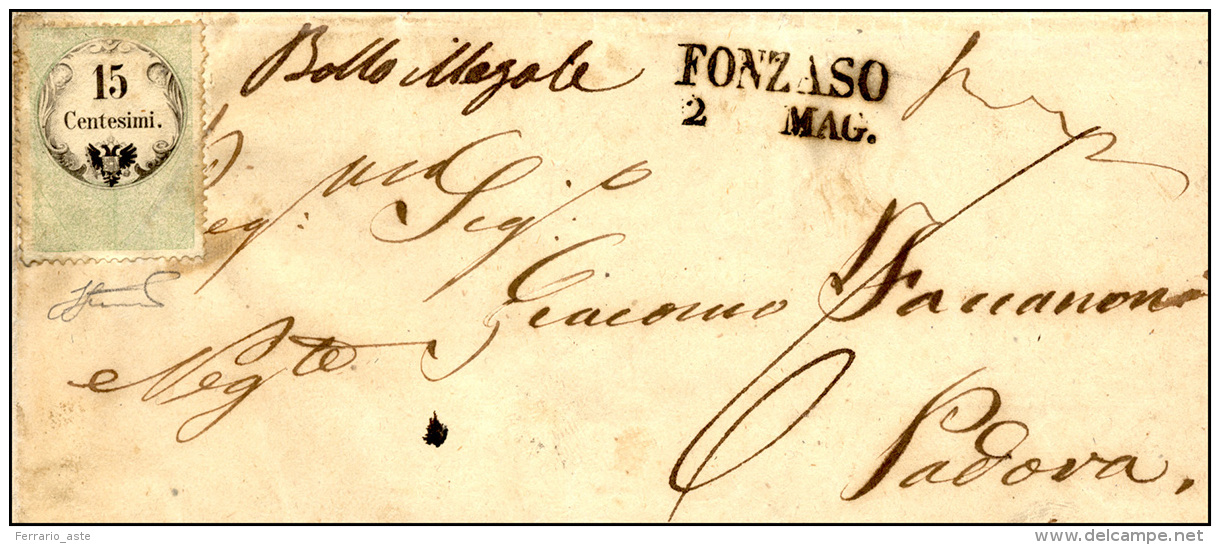 15
Centesimi.
Bollo illegale
FONZASO
2 MAG.
Sig.
Giacomo Faccanoni
Neg.te
Padova.
Ferrario_aste
delcampe.net